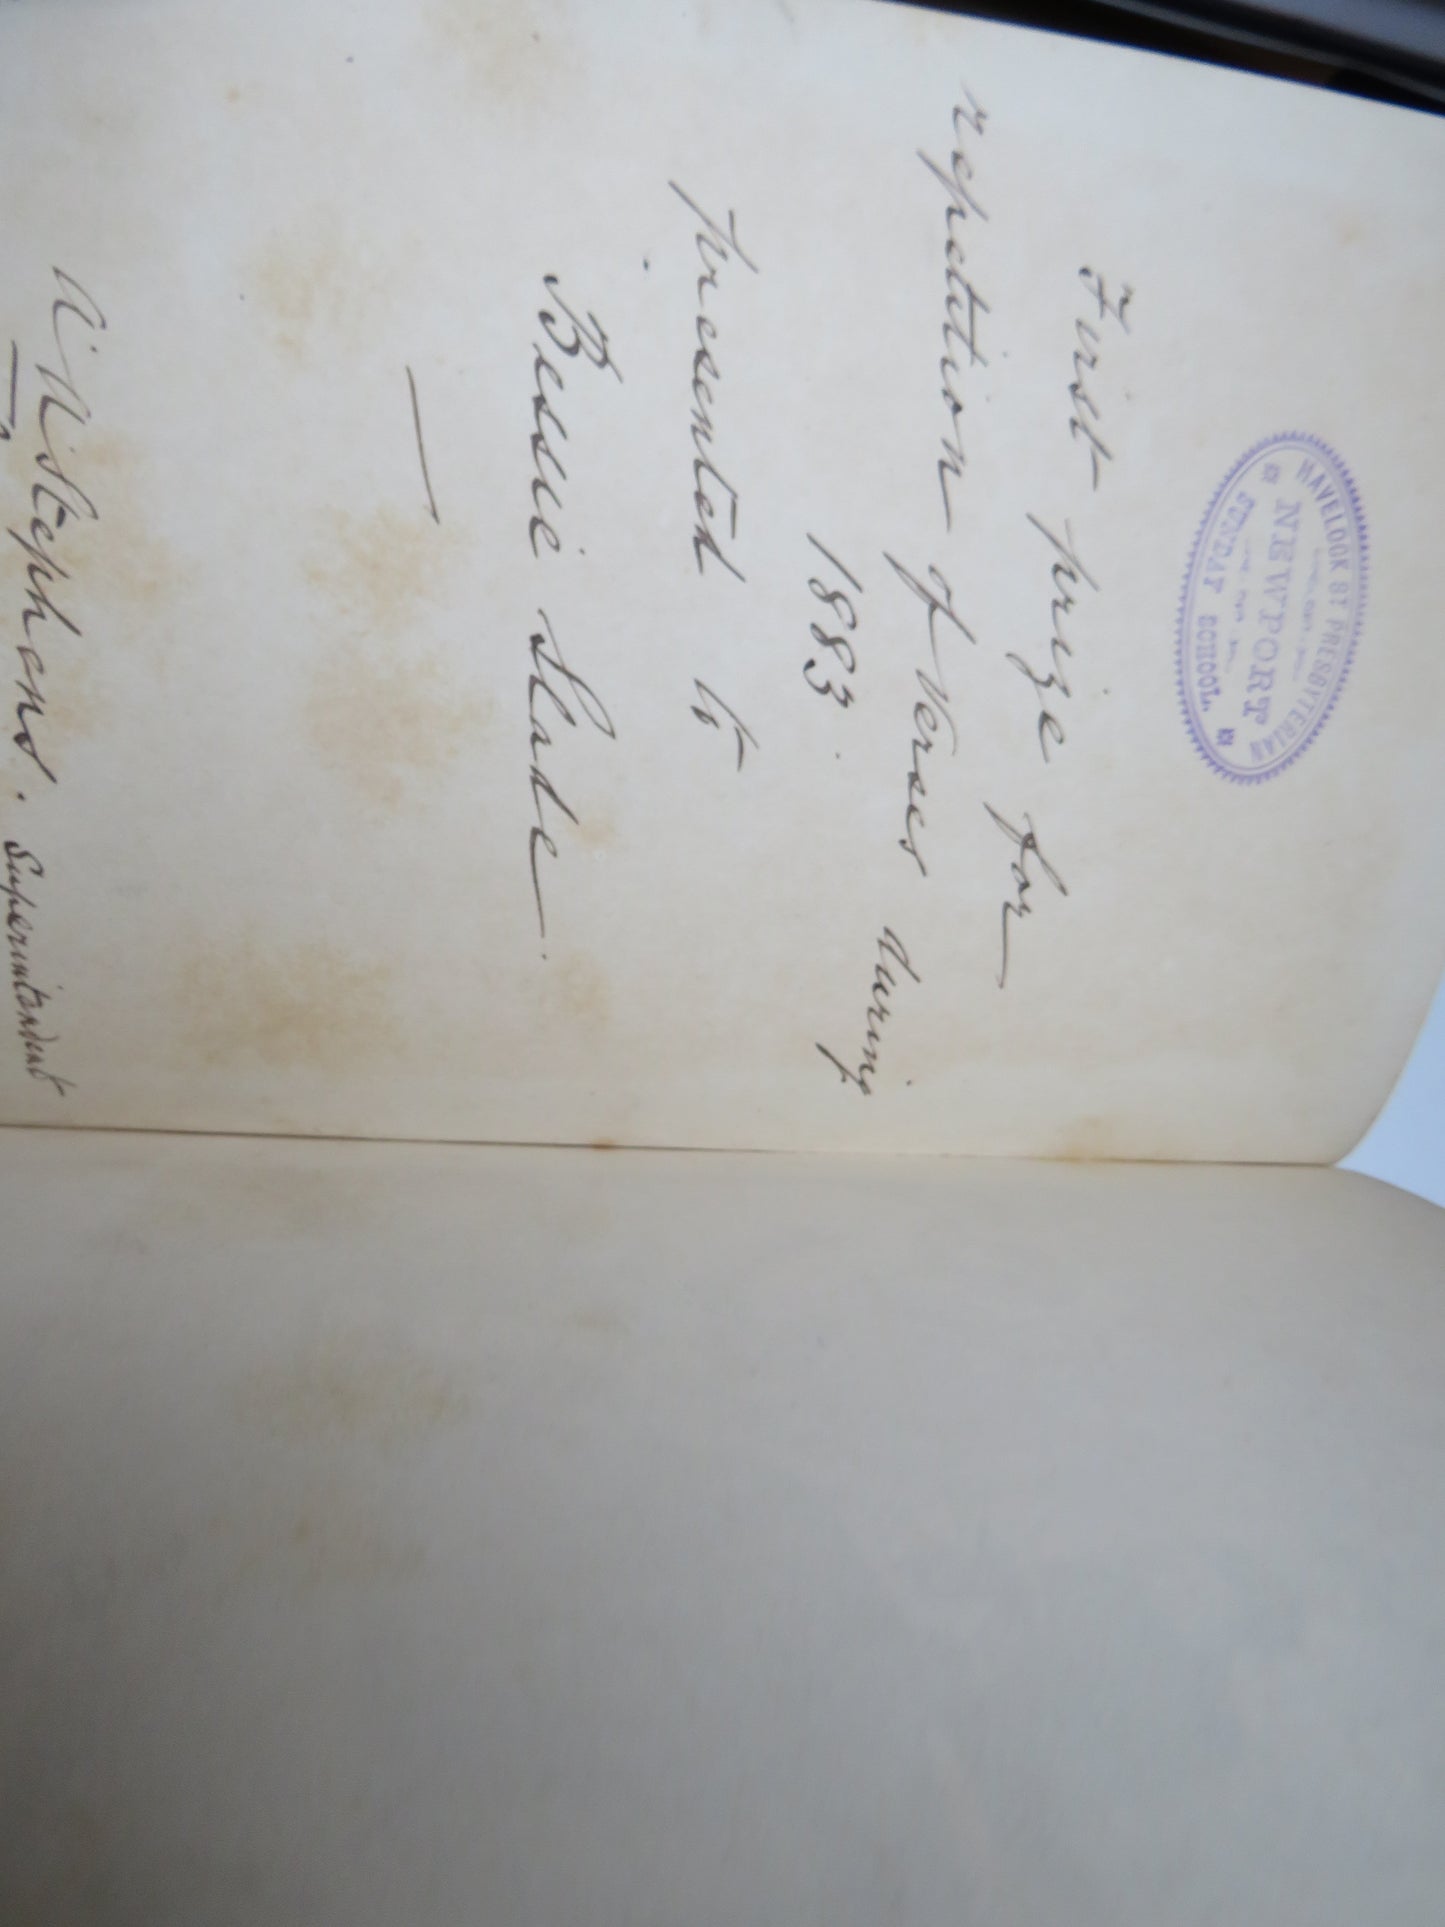 HAVELOCK ST PRESBYTERIAN
NEWPORT
SUNDAY SCHOOL
First prize for
repetition of Verses during
1883.
Presented to
Bessie Slade.
Stephens. Superintendent